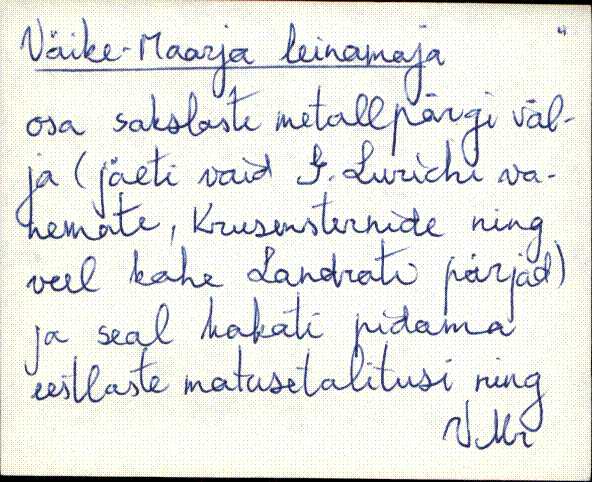 Väike-Maarja leinamaja "
osa sakslaste metallpärgi väl-
ja (jäeti vaid G. Lurichi va-
nemate, Krusensternide ning
veel kahe Landrati pärjad)
ja seal hakati pidama
eestlaste matusetalitusi ning
VMr